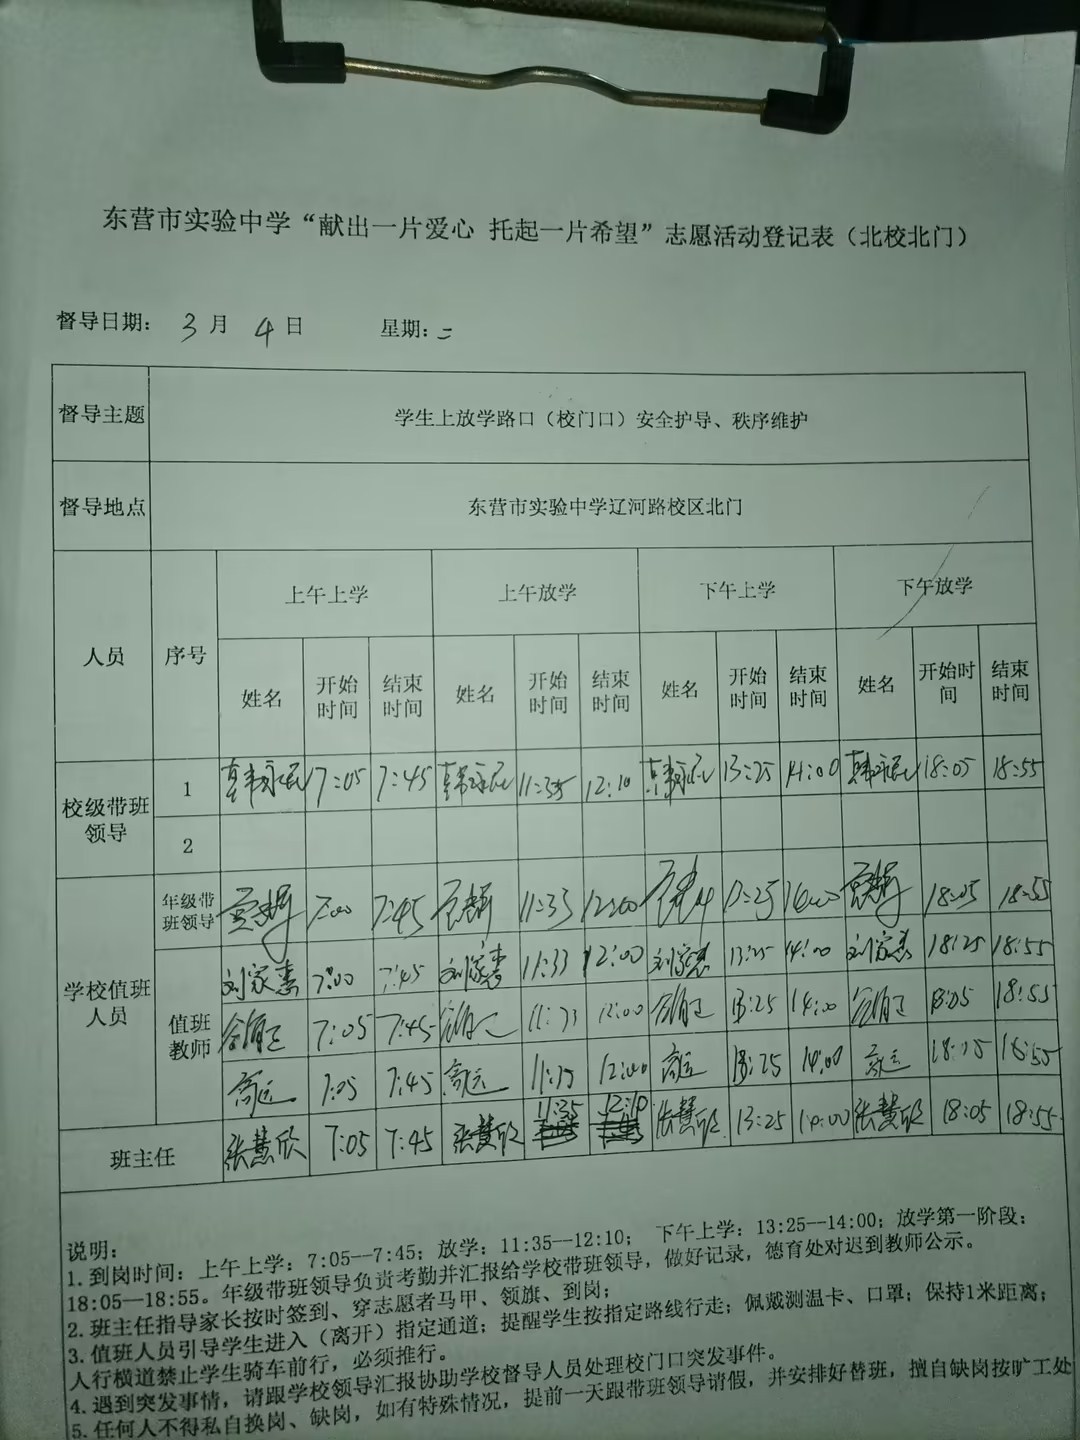 东营市实验中学“献出一片爱心 托起一片希望”志愿活动登记表（北校北门）
督导日期： 3 月 4 日 星期：二
督导主题 学生上放学路口（校门口）安全护导、秩序维护
督导地点 东营市实验中学辽河路校区北门
人员 序号 上午上学 上午放学 下午上学 下午放学
姓名 开始时间 结束时间 姓名 开始时间 结束时间 姓名 开始时间 结束时间 姓名 开始时间 结束时间
校级带班领导 1 韩永民 7:05 7:45 韩永民 11:35 12:10 韩永民 13:25 14:00 韩永民 18:05 18:55
2
学校值班人员 年级带班领导 7:00 7:45 11:35 12:00 14:00 18:05 18:55
值班教师 刘家惠 7:00 7:45 刘家惠 11:33 12:00 刘家惠 13:25 14:00 刘家惠 18:25 18:55
7:05 7:45 12:00 13:25 14:00 18:05 18:55
高运 7:05 7:45 高运 12:00 高运 13:25 14:00 高运 18:55
班主任 张慧欣 7:05 7:45 张慧欣 11:35 12:10 张慧欣 13:25 14:00 张慧欣 18:05 18:55
说明：
1.到岗时间：上午上学：7:05—7:45；放学：11:35—12:10； 下午上学：13:25—14:00；放学第一阶段：
18:05—18:55。年级带班领导负责考勤并汇报给学校带班领导，做好记录，德育处对迟到教师公示。
2.班主任指导家长按时签到、穿志愿者马甲、领旗、到岗；
3.值班人员引导学生进入（离开）指定通道；提醒学生按指定路线行走；佩戴测温卡、口罩；保持1米距离；
人行横道禁止学生骑车前行，必须推行。
4.遇到突发事情，请跟学校领导汇报协助学校督导人员处理校门口突发事件。
5.任何人不得私自换岗、缺岗，如有特殊情况，提前一天跟带班领导请假，并安排好替班，擅自缺岗按旷工处